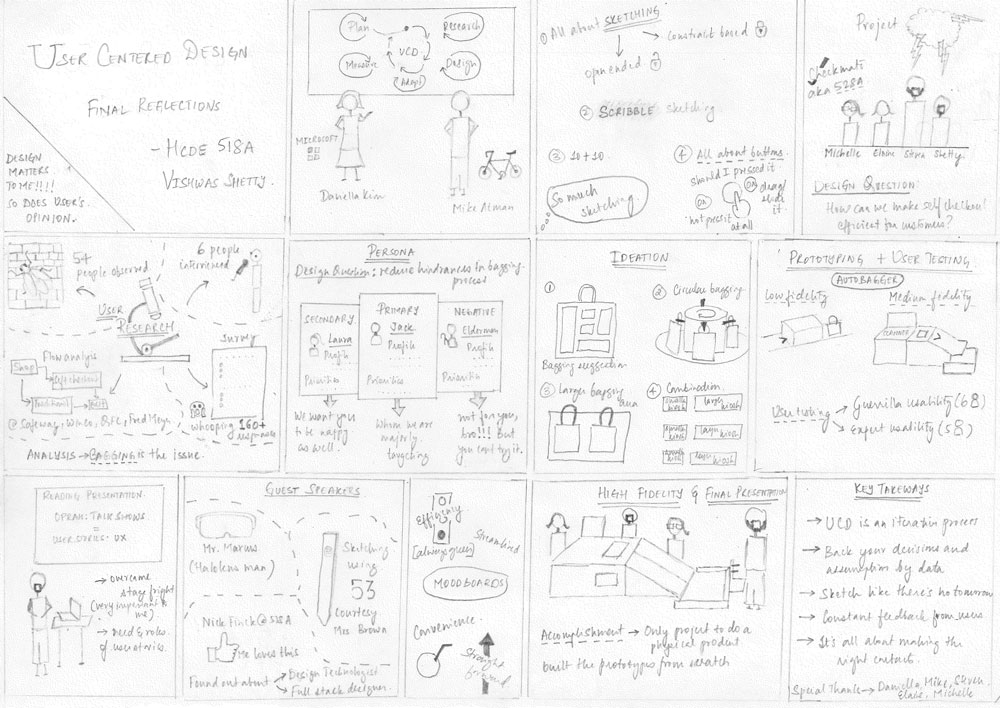 USER CENTERED DESIGN
FINAL REFLECTIONS
- HCDE 518A
VISHWAS SHETTY.
DESIGN
MATTERS
TO ME!!!!
SO DOES USER'S
OPINION.
Plan
Research
UCD
Measure
Adapt
Design
MICROSOFT
Daniella Kim
Mike Atman
① All about SKETCHING
Constraint based
open ended
② SCRIBBLE sketching
③ 10+10
So much
sketching
④ All about buttons.
should I press it
OR
OR
drag/
slide
it.
not press it
at all
Project
Checkmate
aka 528A
Michelle Elaine Steven Shetty.
DESIGN QUESTION:
How can we make self checkout
efficient for customers?
54
people observed
6 people
interviewed
USER
RESEARCH
Flow analysis
Shop
Self checkout
@ Safeway, Winco, QFC, Fred Meyer
Survey
whooping 160+
responses
ANALYSIS → BAGGING is the issue.
PERSONA
Design Question: reduce hindrances in bagging
process
SECONDARY
Laura
Profile
Priorities
PRIMARY
Jack
Profile
Priorities
NEGATIVE
Elderman
Profile
Priorities
We want you
to be happy
as well.
whom we are
majorly
targeting
not for you,
bro!!! But
you can try it.
IDEATION
①
Bagging suggestion
② Circular bagging
③ Larger bagging
area
④ Combination
small
kiosk
large
kiosk
PROTOTYPING + USER TESTING
AUTOBAGGER
Low fidelity
Medium fidelity
User testing
Guerrilla usability (68)
Expert usability (58)
READING PRESENTATION
OPRAH: TALK SHOWS
=
USER STORIES: UX
→ overcame
stage fright
(very important to
me)
→ need & roles
of user stories.
GUEST SPEAKERS
Mr. Marcus
(Hololens man)
Sketching
using
53
Courtesy
Mrs Brown
Nick Finck @ 518A
Me loves this
Found out about
Design Technologist
Full stack designer.
Efficiency
[always green]
Streamlined
MOODBOARDS
Convenience
Straight
forward
HIGH FIDELITY & FINAL PRESENTATION
Accomplishment → Only project to do a
physical product
built the prototypes from scratch
KEY TAKEWAYS
→ UCD is an iterative process
→ Back your decisions and
assumptions by data
→ Sketch like there's no tomorrow
→ Constant feedback from users
→ It's all about making the
right contacts.
Special Thanks → Daniella, Mike, Steven
Elaine, Michelle